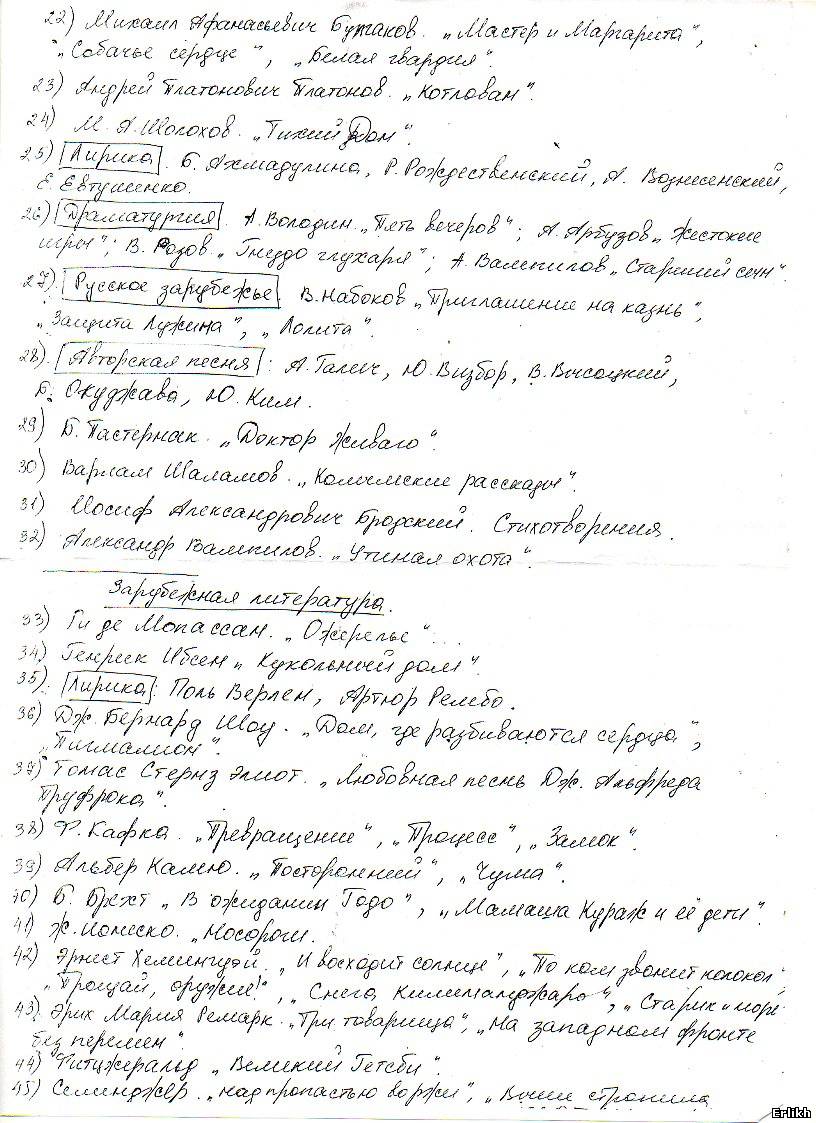 22) Михаил Афанасьевич Булгаков. „Мастер и Маргарита",
„Собачье сердце", „Белая гвардия".
23) Андрей Платонович Платонов. „Котлован".
24) М. А. Шолохов. „Тихий Дон".
25) Лирика. Б. Ахмадулина, Р. Рождественский, А. Вознесенский,
Е. Евтушенко.
26) Драматургия. А. Володин „Пять вечеров"; А. Арбузов „Жестокие
игры"; В. Розов „Гнездо глухаря"; А. Вампилов „Старший сын".
27) Русское зарубежье. В. Набоков „Приглашение на казнь",
„Защита Лужина", „Лолита".
28) Авторская песня: А. Галич, Ю. Визбор, В. Высоцкий,
Б. Окуджава, Ю. Ким.
29) Б. Пастернак. „Доктор Живаго".
30) Варлам Шаламов. „Колымские рассказы".
31) Иосиф Александрович Бродский. Стихотворения.
32) Александр Вампилов. „Утиная охота".
Зарубежная литература.
33) Ги де Мопассан. „Ожерелье"...
34) Генрик Ибсен „Кукольный дом".
35) Лирика: Поль Верлен, Артюр Рембо.
36) Дж. Бернард Шоу. „Дом, где разбиваются сердца",
„Пигмалион".
37) Томас Стернз Элиот. „Любовная песнь Дж. Альфреда
Пруфрока".
38) Ф. Кафка. „Превращение", „Процесс", „Замок".
39) Альбер Камю. „Посторонний", „Чума".
40) Б. Брехт „В ожидании Годо", „Мамаша Кураж и её дети".
41) Ж. Ионеско. „Носороги.
42) Эрнест Хемингуэй. „И восходит солнце", „По ком звонит колокол",
„Прощай, оружие!", „Снега Килиманджаро", „Старик и море
43) Эрих Мария Ремарк. „Три товарища", „На западном фронте
без перемен".
44) Фитцжеральд „Великий Гетсби".
45) Селинджер. „Над пропастью во ржи", „Выше стропила
Erlikh